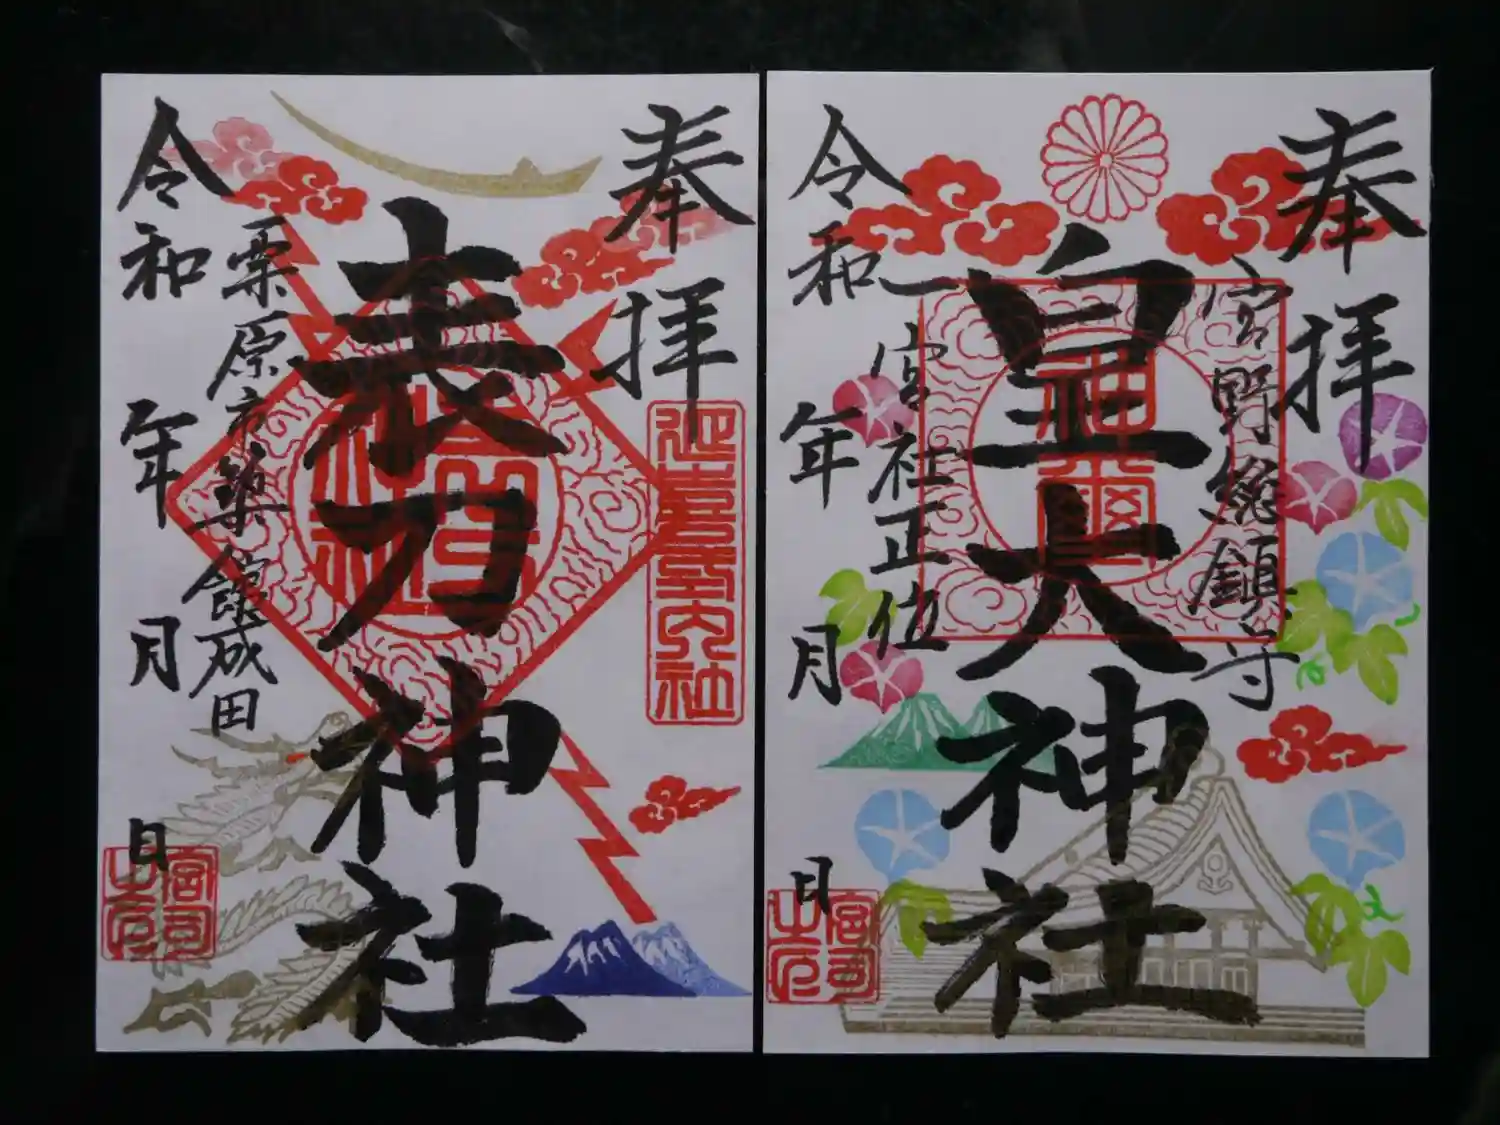 奉拝
延喜式内社
表刀神社
栗原市築館成田
令和 年 月 日
宮司之印
奉拝
宮野総鎮守
皇大神社
神璽
一宮社正位
令和 年 月 日
宮司之印